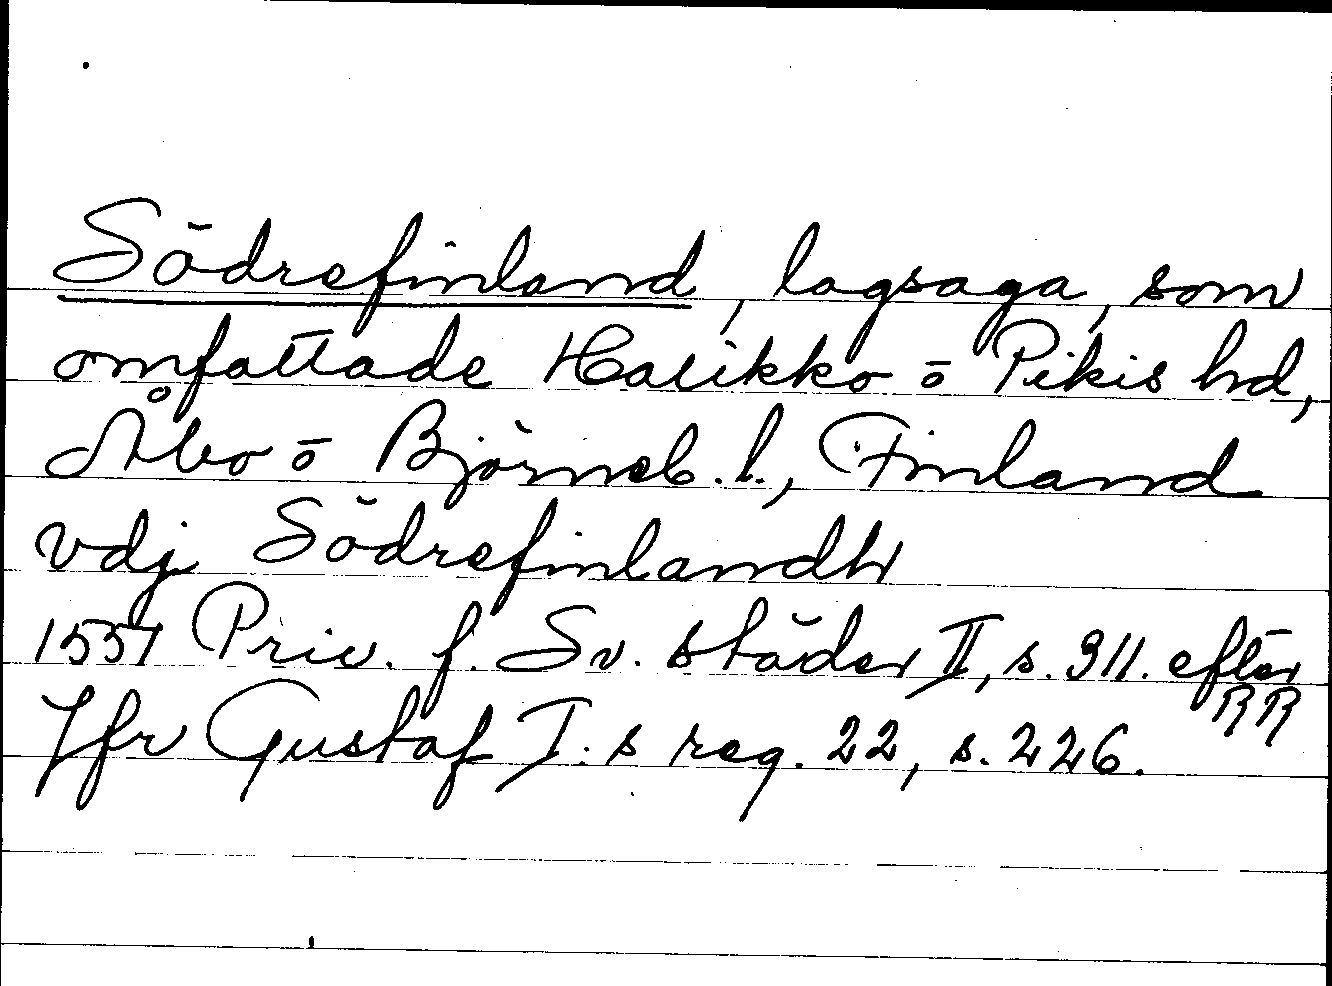 Södrefinland, lagsaga, som
omfattade Halikko o Pikis hd,
Åbo o Björneb. l., Finland
vdj Södrefinlandh
1557 Priv. f. Sv. städer II, s. 311. efter
RR
Jfr Gustaf I:s reg. 22, s. 226.